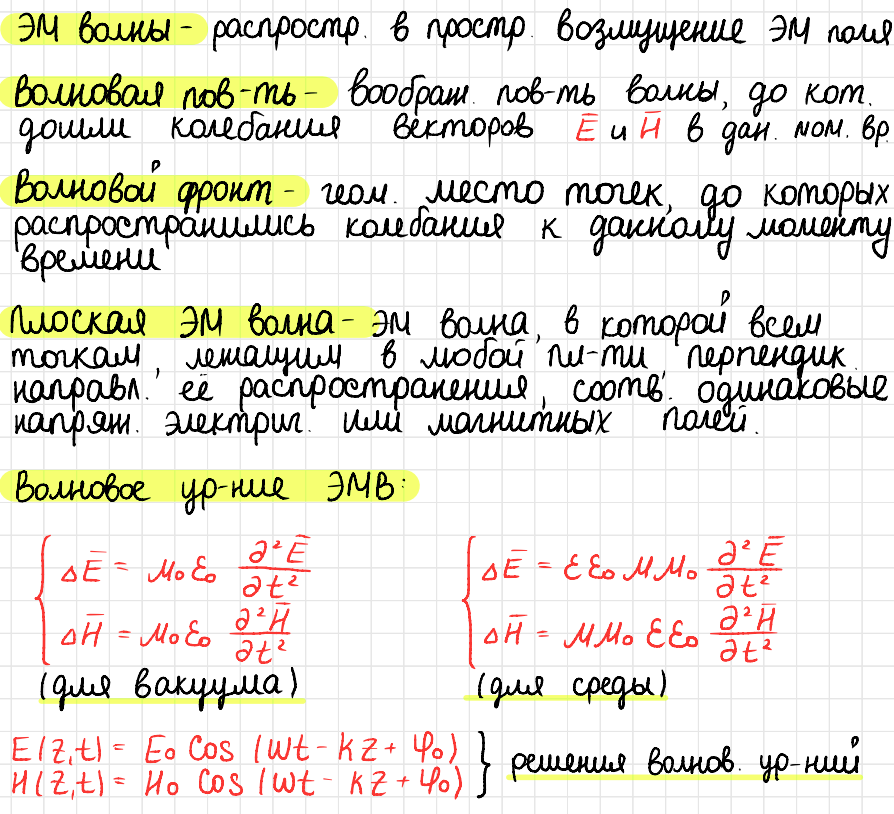 ЭМ волны - распростр. в простр. возмущение ЭМ поля
Волновая пов-ть - воображ. пов-ть волны, до кот.
дошли колебания векторов E̅ и H̅ в дан. мом. вр.
Волновой фронт - геом. место точек, до которых
распространились колебания к данному моменту
времени
Плоская ЭМ волна - ЭМ волна, в которой всем
точкам, лежащим в любой пл-ти, перпендик.
направл. её распространения, соотв. одинаковые
напряж. электрич. или магнитных полей.
Волновое ур-ние ЭМВ:
{ ΔE̅ = μ₀ε₀ ∂²E̅/∂t²
ΔH̅ = μ₀ε₀ ∂²H̅/∂t²
(для вакуума)
{ ΔE̅ = εε₀μμ₀ ∂²E̅/∂t²
ΔH̅ = μμ₀εε₀ ∂²H̅/∂t²
(для среды)
E(z,t) = E₀ cos (ωt - kz + φ₀)
H(z,t) = H₀ cos (ωt - kz + φ₀)
} решения волнов. ур-ний